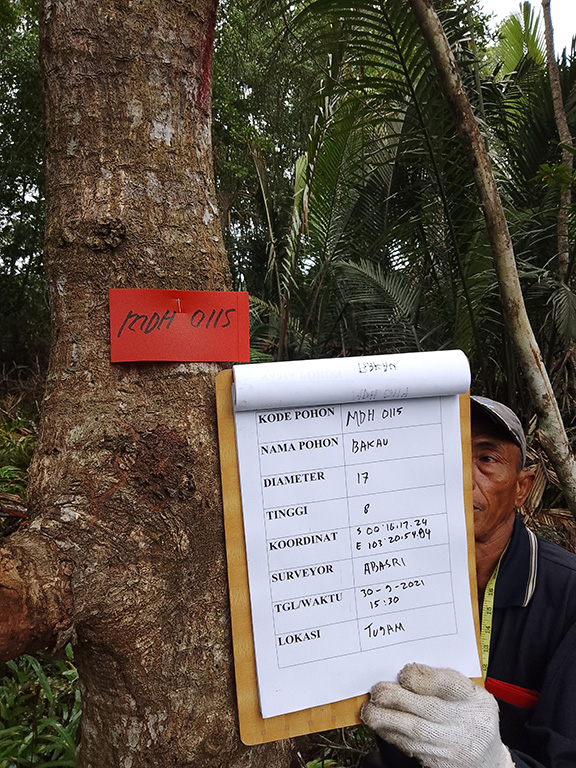 MDH 0115
KODE POHON MDH 0115
NAMA POHON BAKAU
DIAMETER 17
TINGGI 8
KOORDINAT S 00°16.17.24
E 103°20.54.94
SURVEYOR ABASRI
TGL/WAKTU 30-9-2021
15:30
LOKASI TUGAM